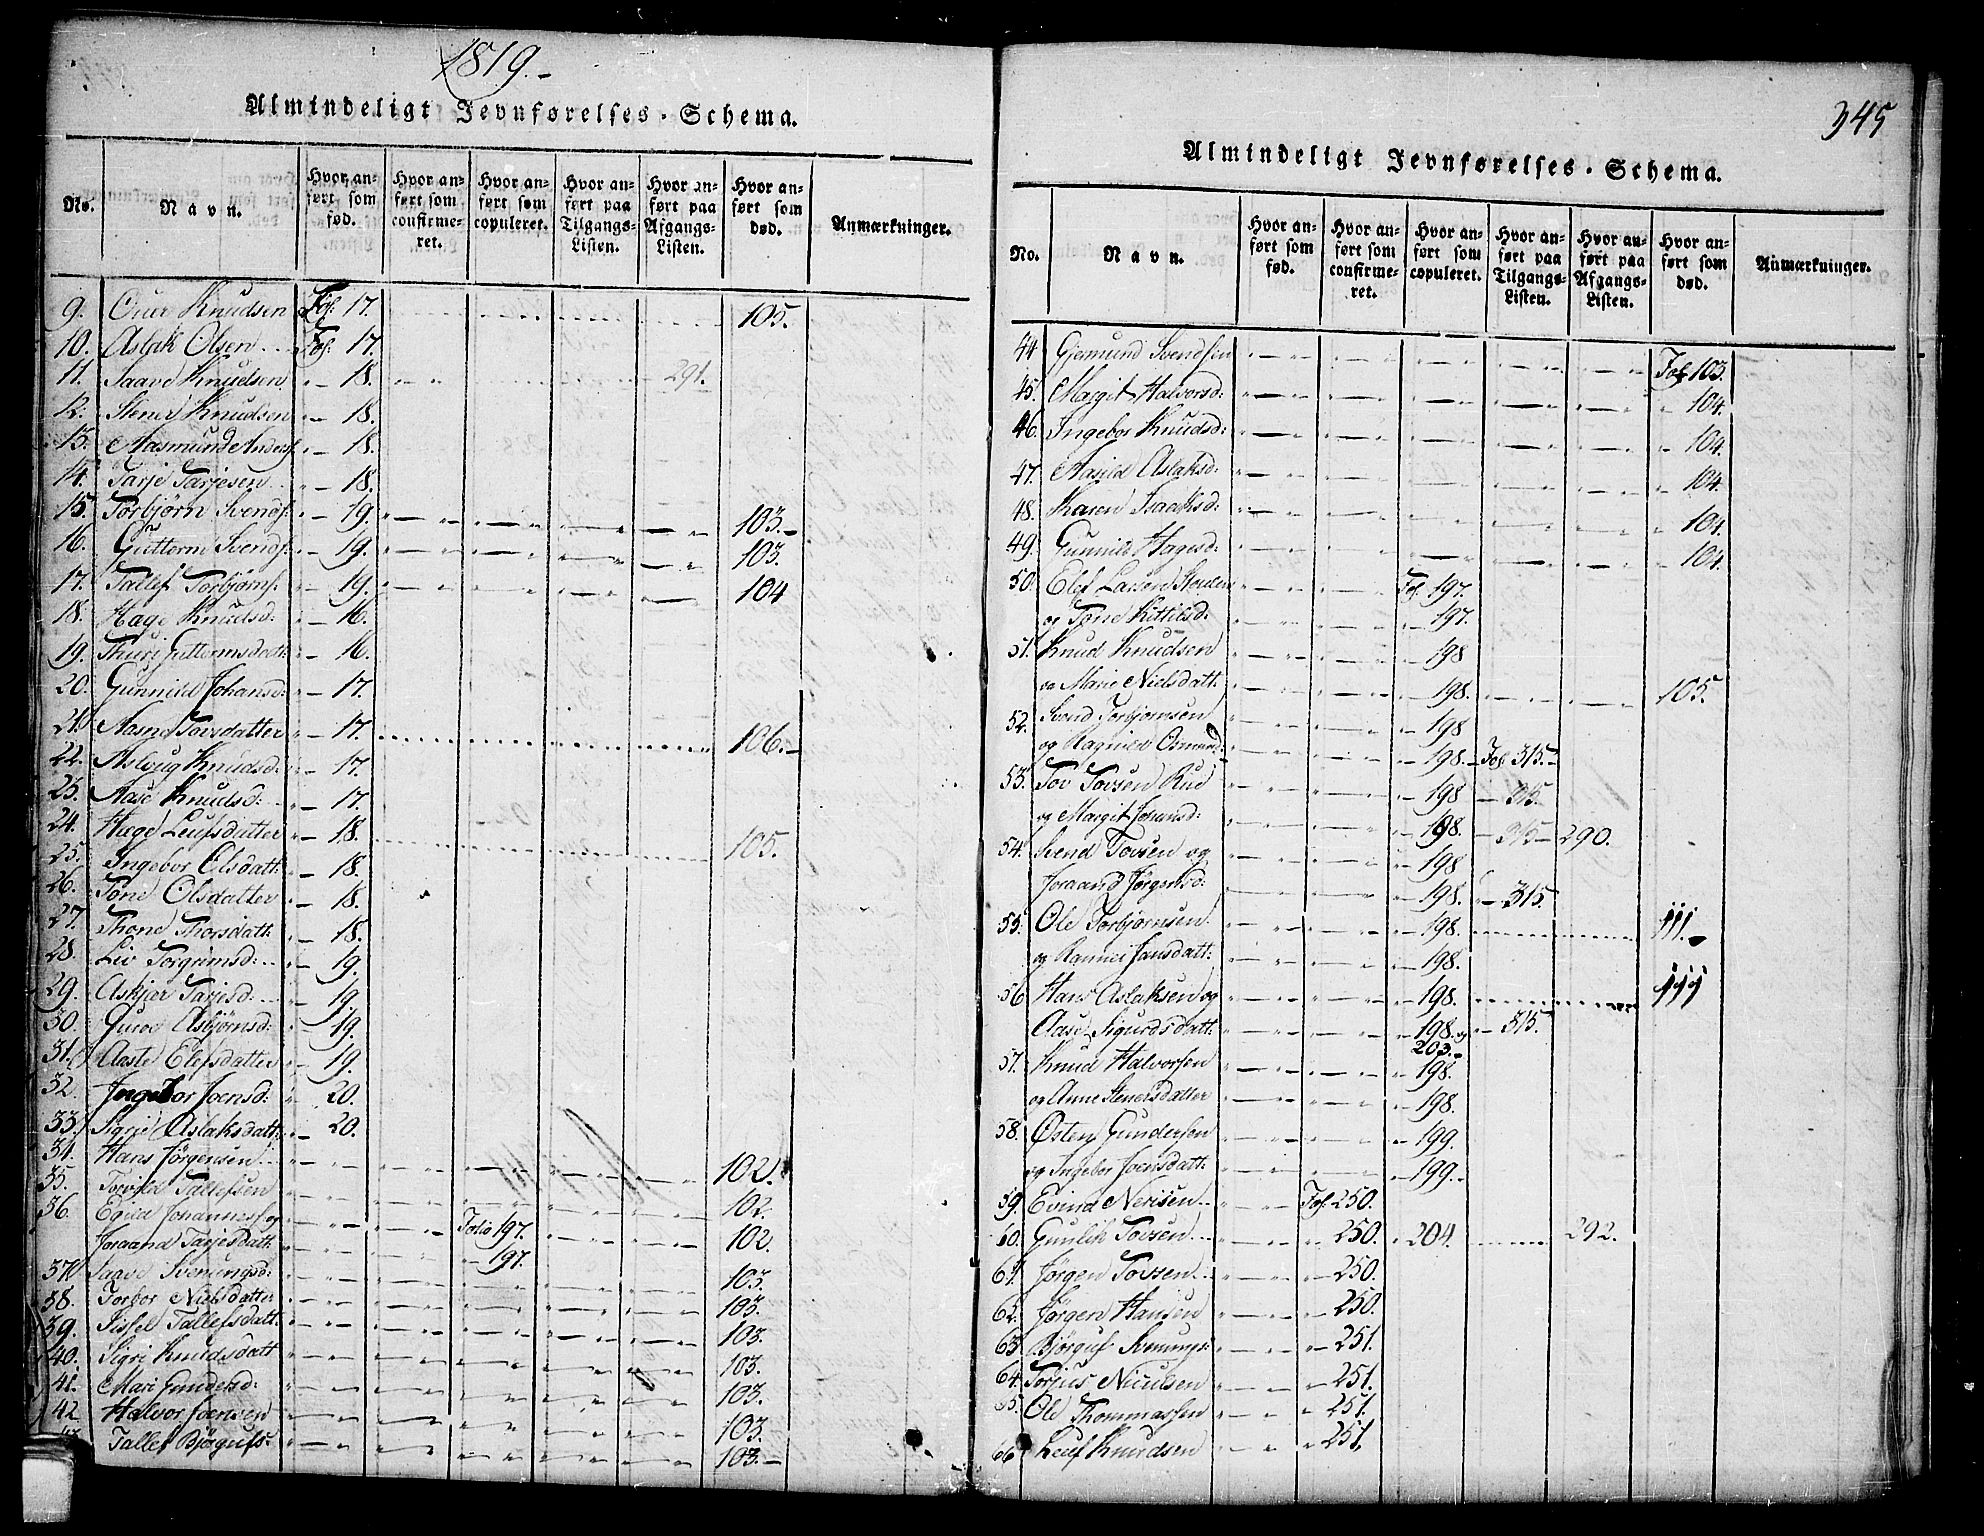 1819.-
Almindeligt Jevnførelses-Schema.
No. Navn. Hvor anført som fød. Hvor anført som confirmeret. Hvor anført som copuleret. Hvor anført paa Tilgangs-Listen. Hvor anført paa Afgangs-Listen. Hvor anført som død. Anmærkninger.
9. Knudsen Fol. 17. 105.
10. Aslak Olsen Fol. 17.
11. Saave Knudsen " 18. 291.
12. Stener Knudsen " 18.
13. Aasmund Anders. " 18.
14. Tarje Tarjesen " 18.
15. Torbjørn Svends. " 19. 103.
16. Guttorm Svends. " 19. 103.
17. Tallef Torbjørns. " 19. 104
18. Hage Knudsd: " 16.
19. Thuri Guttormsdatt: " 16.
20. Gunnild Johansd: " 17.
21. Aasne Tovsdatter " 17. 106.
22. Aslaug Knudsd: " 17.
23. Aase Knudsd: " 17.
24. Hage Leufsdatter " 18. 105.
25. Ingebor Olsdatt: " 18.
26. Tone Olsdatter " 18.
27. Thone Thorsdatt: " 18.
28. Liv Torgrimsd: " 19.
29. Askjær Tarjesd: " 19.
30. Asbjørnsd: " 19.
31. Aaste Elefsdatter " 19.
32. Ingebor Joensd: " 20.
33. Sigrid Aslaksdatt: " 20.
34. Hans Jørgensen 102.
35. Torvild Tallefsen 102.
36. Egild Johanness. og Folio 197. 102.
Joraand Tarjesdatt: 197.
37. Saave Svenungsd: 103.
38. Torbor Nielsdatter 103.
39. Sissel Tallefsdatt: 103.
40. Sigri Knudsdatt 103.
41. Mari Gundersd: 103.
42 Halvor Joensen 103.
Tallef Bjørgufs: 103.-
345
Almindeligt Jevnførelses-Schema.
No. Navn. Hvor anført som fød. Hvor anført som confirmeret. Hvor anført som copuleret. Hvor anført paa Tilgangs-Listen. Hvor anført paa Afgangs-Listen. Hvor anført som død. Anmærkninger.
44 Gjemund Svendsen Fol 103.
45. Margit Halvorsd: 104.
46. Ingebor Knudsd: 104.
47. Aasild Aslaksd: 104.
48. Karen Isaaksd: 104.
49. Gunnild Hagesd: 104.
50. Elef Larsen Fol. 197.
og Tone Kittilsd: 197.
51. Knud Knudsen 198
og Marie Nielsdatt: 198. 105.
52. Svend Torbjørnsen 198
og Ragnild Osmund: 198. Fol 315.
53. Tov Tovsen Rud 198 315.
og Margit Johansd: 198. 315 290.
54. Svend Tovsen og 198
Joraand Jørgensd: 198. 315.
55. Ole Torbjørnsen 198. 111.
og Rannei Jansdatt: 198.
56 Hans Aslaksen og 198. 111
Aase Sigurdsdatt: 198. 315.
203.
57. Knud Halvorsen 198.
og Anne Stenersdatter 198.
58. Østen Gundersen 199.
og Ingebor Joensdatt: 199.
59. Evind Nerisen Fol. 250.
60. Gunlik Tovsen 250. 204. 292.
61. Jørgen Tovsen 250.
62. Jørgen Hansen 250.
63. Bjørguf 251.
64. Torjus Niculsen 251.
65. Ole Thommassen 251.
66 Leuf Knudsen 251.